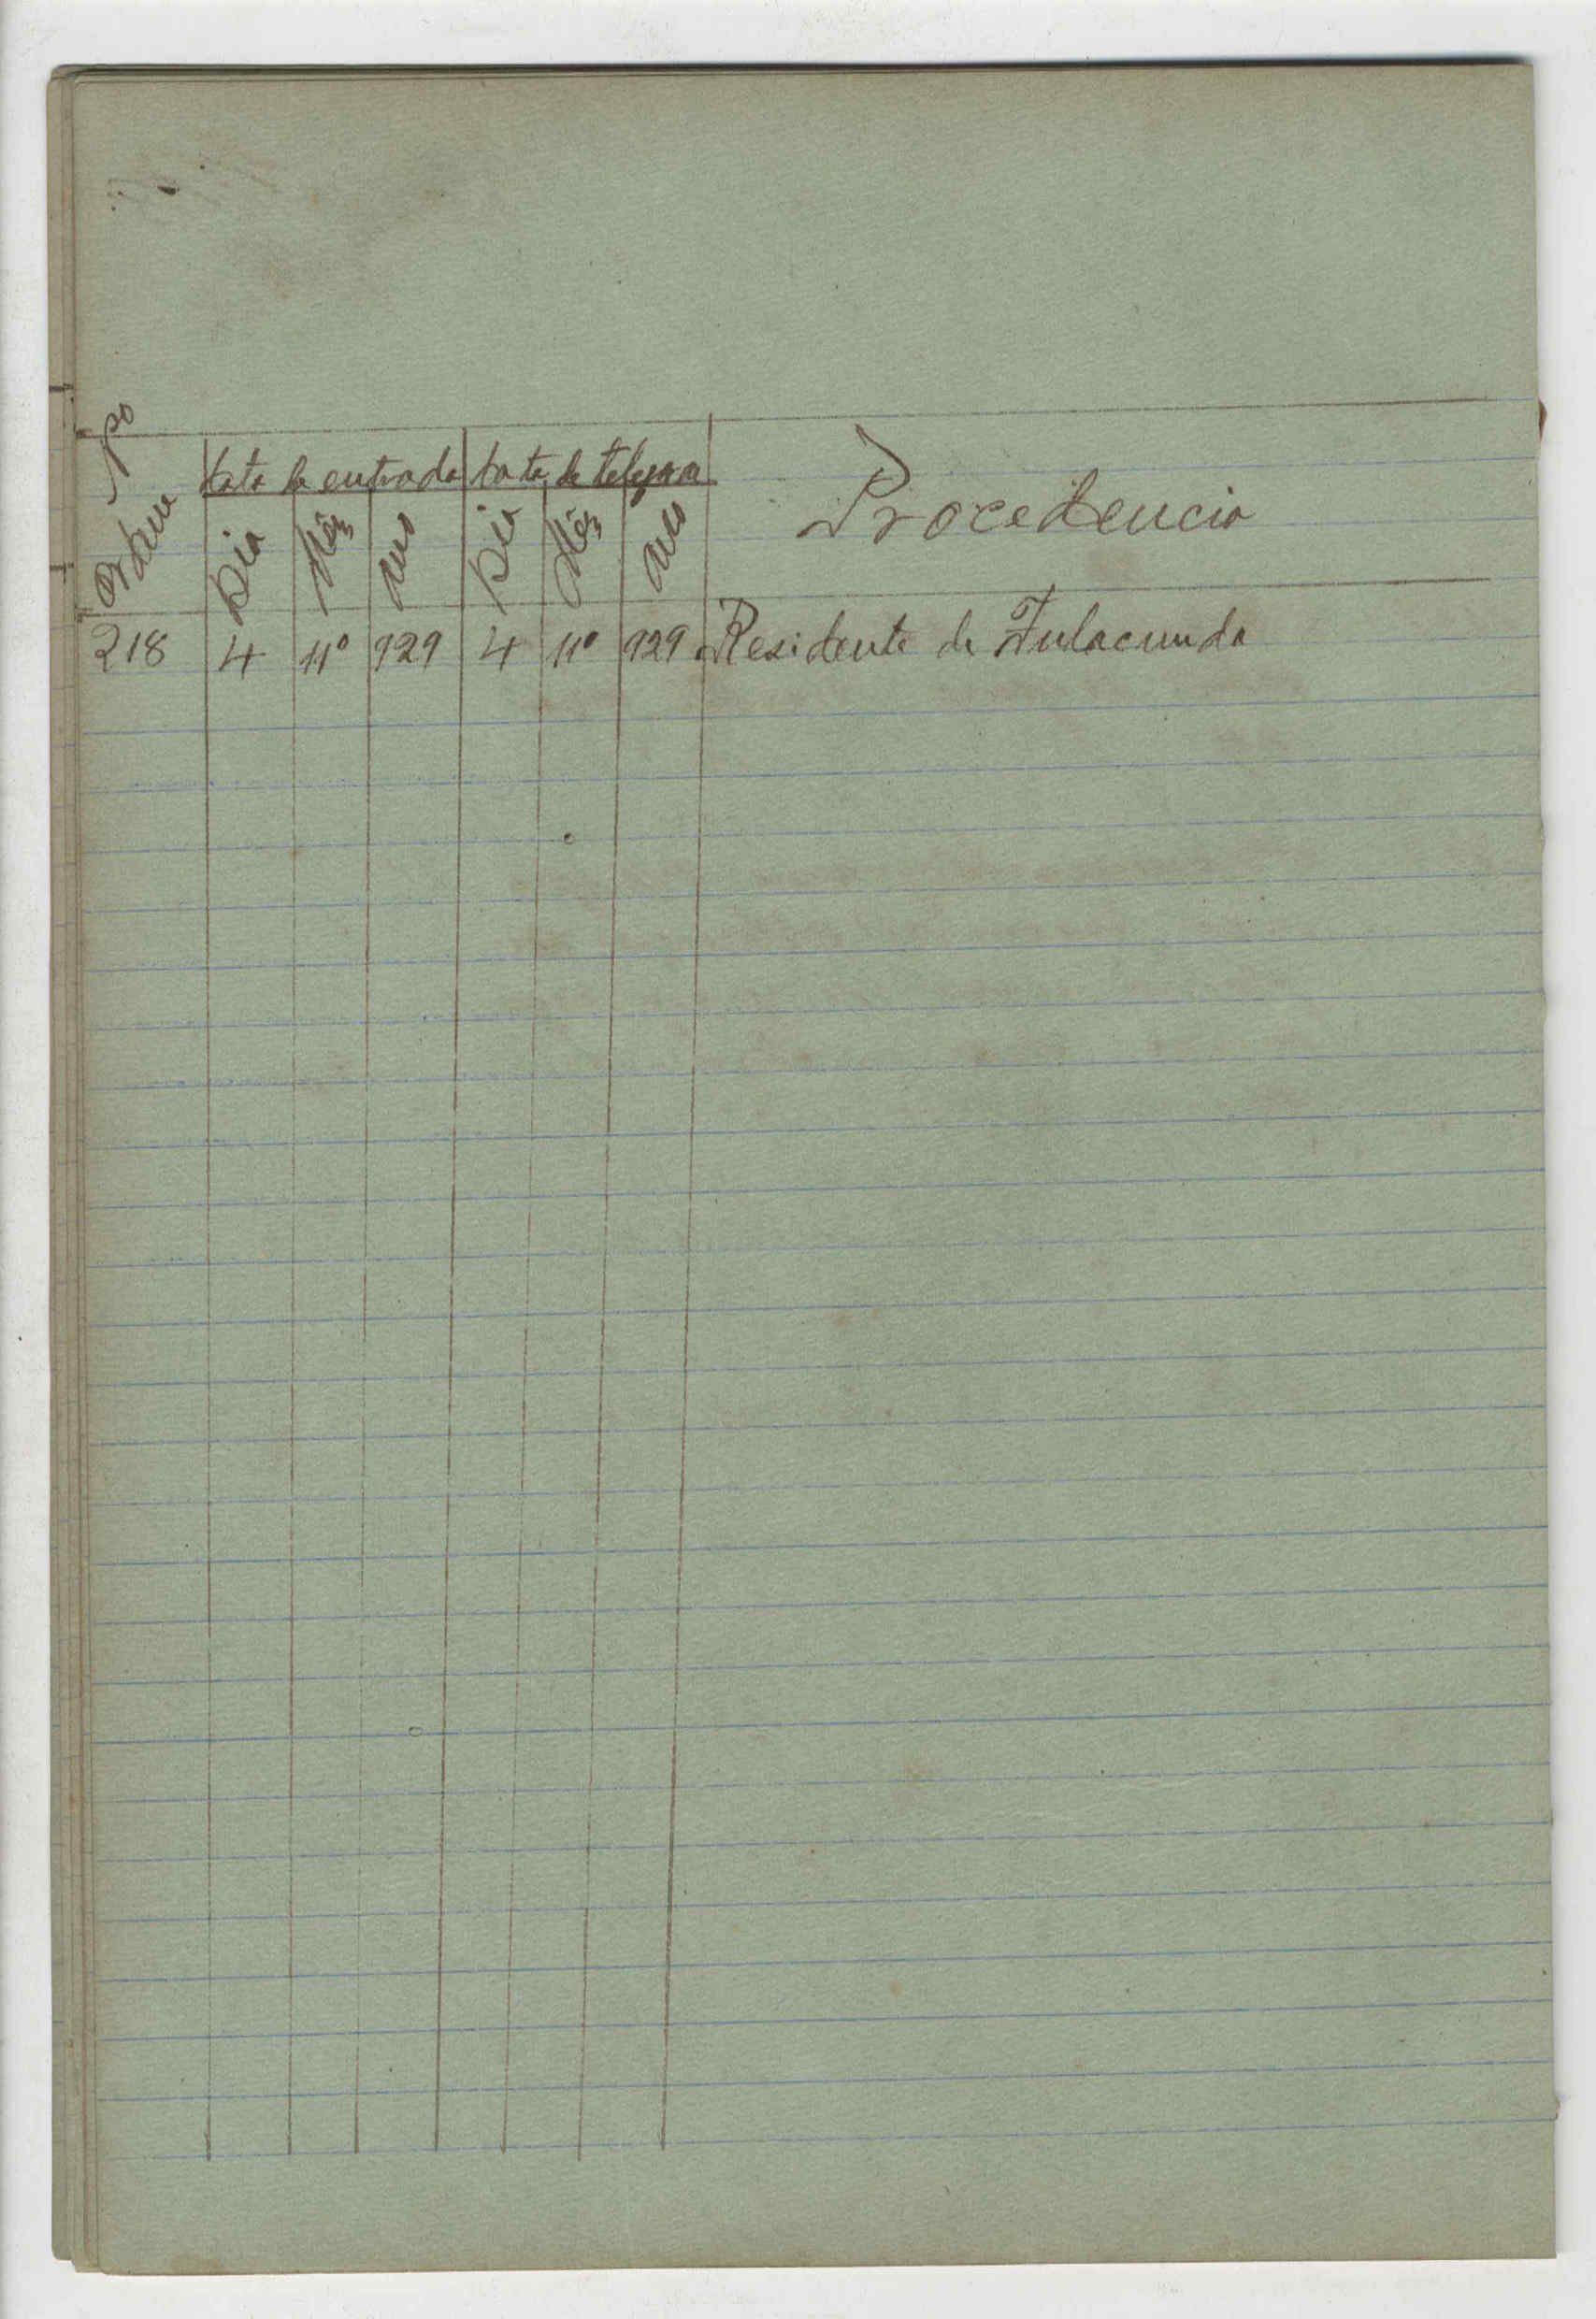 Nº Ordem
Data de entrada Data de telegrama Procedencia
Dia Mês Ano Dia Mês Ano
218 4 11º 929 4 11º 929 Residente de Fulacunda